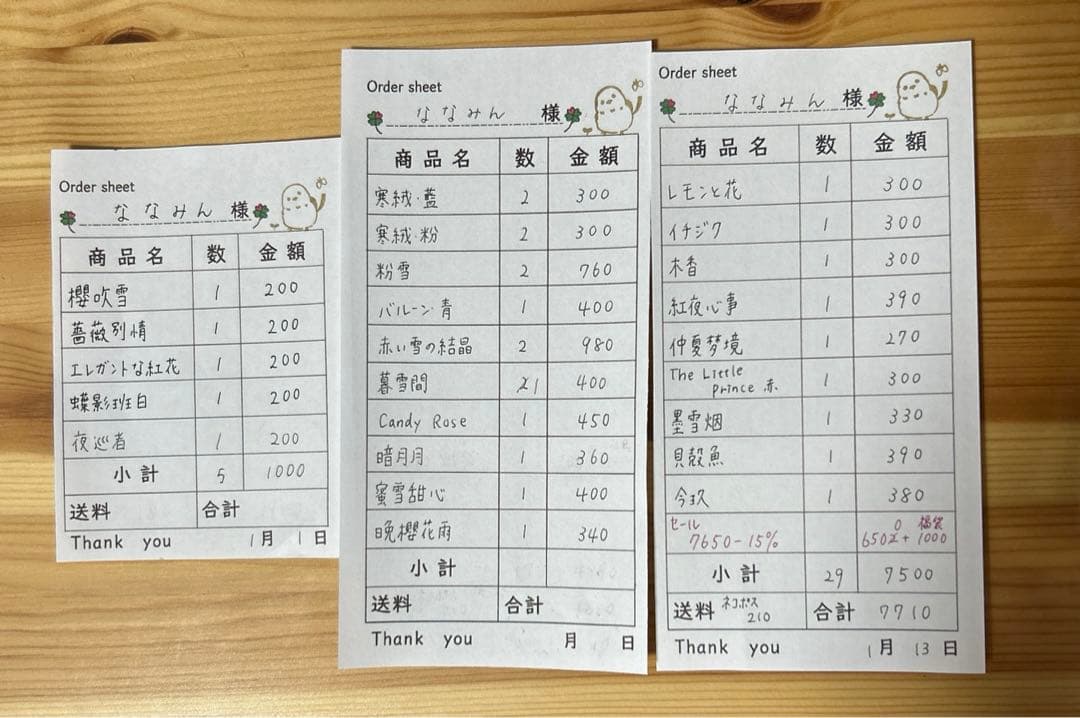 Order sheet
ななみん 様
商品名 数 金額
櫻吹雪 1 200
薔薇別情 1 200
エレガントな紅花 1 200
蝶影斑白 1 200
夜巡者 1 200
小計 5 1000
送料 合計
Thank you 1月 1日
Order sheet
ななみん 様
商品名 数 金額
寒絨·藍 2 300
寒絨·粉 2 300
粉雪 2 760
バルーン·青 1 400
赤い雪の結晶 2 980
暮雪間 1 400
Candy Rose 1 450
暗月月 1 360
蜜雪甜心 1 400
晩櫻花雨 1 340
小計
送料 合計
Thank you 月 日
Order sheet
ななみん 様
商品名 数 金額
レモンと花 1 300
イチジク 1 300
木香 1 300
紅夜心事 1 390
仲夏梦境 1 270
The Little
Prince 赤 1 300
墨雪烟 1 330
貝殻魚 1 390
今玖 1 380
セール 0 福袋
7650-15% 650 + 1000
小計 29 7500
送料 ネコポス 210 合計 7710
Thank you 1月 13日